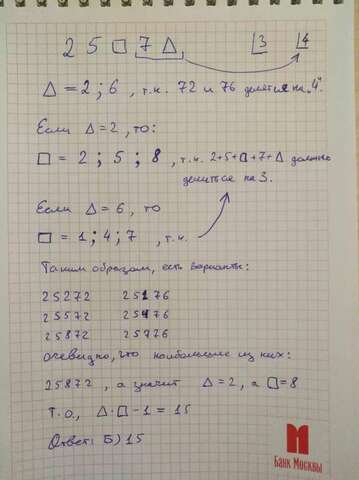 2 5 □ 7 △ ⌊3 ⌊4
△ = 2 ; 6 , т.к. 72 и 76 делятся на "4".
Если △=2 , то:
□ = 2 ; 5 ; 8 , т.к. 2+5+□+7+△ должно
делиться на 3.
Если △=6, то
□ = 1 ; 4 ; 7 , т.к.
Таким образом, есть варианты:
25272 25176
25572 25476
25872 25776
очевидно, что наибольшее из них:
25872 , а значит △=2, а □=8
Т.о., △·□-1 = 15
Ответ: Б) 15
Банк Москвы